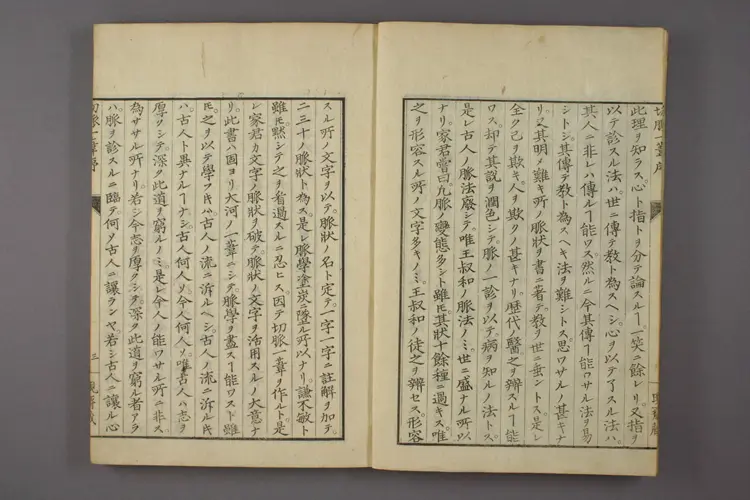 切脈一葦序
此理ヲ知ラス心ト指トヲ分テ論スルヿ一笑ニ餘レリ又指ヲ
以テ診スル法ハ世ニ傳テ教ト為スヘシ心ヲ以テ了スル法ハ
其人ニ非レハ傳ルヿ能ワス然ルニ今其傳ヿ能ワサル法ヲ易
シトシ其傳テ教ト為スヘキ法ヲ難シトス思ワサルノ甚キナ
リ又其明メ難キ所ノ脈狀ヲ書ニ著テ教ヲ世ニ垂ントス是レ
全ク己ヲ欺キ人ヲ欺クノ甚キナリ歴代ノ醫之ヲ辨スルヿ能
ワス却テ其説ヲ潤色シテ脈ノ一診ヲ以テ病ヲ知ルノ法トス
是レ古人ノ脈法廢シテ唯王叔和ノ脈法ノミ世ニ盛ナル所以
ナリ家君嘗曰凢脈ノ變態多シト雖𪜈其狀十餘種ニ過キス唯
之ヲ形容スル所ノ文字多キノミ王叔和ノ徒之ヲ辨セス形容
スル所ノ文字ヲ以テ脈狀ノ名ト定テ一字一字ニ註解ヲ加テ
二三十ノ脈狀ト為ス是レ脈學塗炭ニ墮ル所以ナリ謙不敏ト
雖𪜈黙シテ之ヲ看過スルニ忍ヒス因テ切脈一葦ヲ作ルト是
レ家君カ文字ノ脈狀ヲ破テ脈狀ノ文字ヲ活用スルノ大意ナ
リ此書ハ固ヨリ大河ノ一葦ニシテ脈學ヲ盡スヿ能ワスト雖
𪜈之ヲ以テ學フ𪜈ハ古人ノ流ニ泝ルヘシ古人ノ流ニ泝ル𪜈
ハ古人ト異ナルヿナシ古人何人ソ今人何人ソ唯古人ハ志ヲ
厚クシテ深ク此道ヲ窮ルノミ是レ今人ノ能ワサル所ニ非ス
為ササル所ナリ若シ今志ヲ厚クシテ深ク此道ヲ窮ル者アラ
ハ脈ヲ診スルニ臨テ何ソ古人ニ讓ランヤ若シ古人ニ讓ル心
切脈一葦序
三